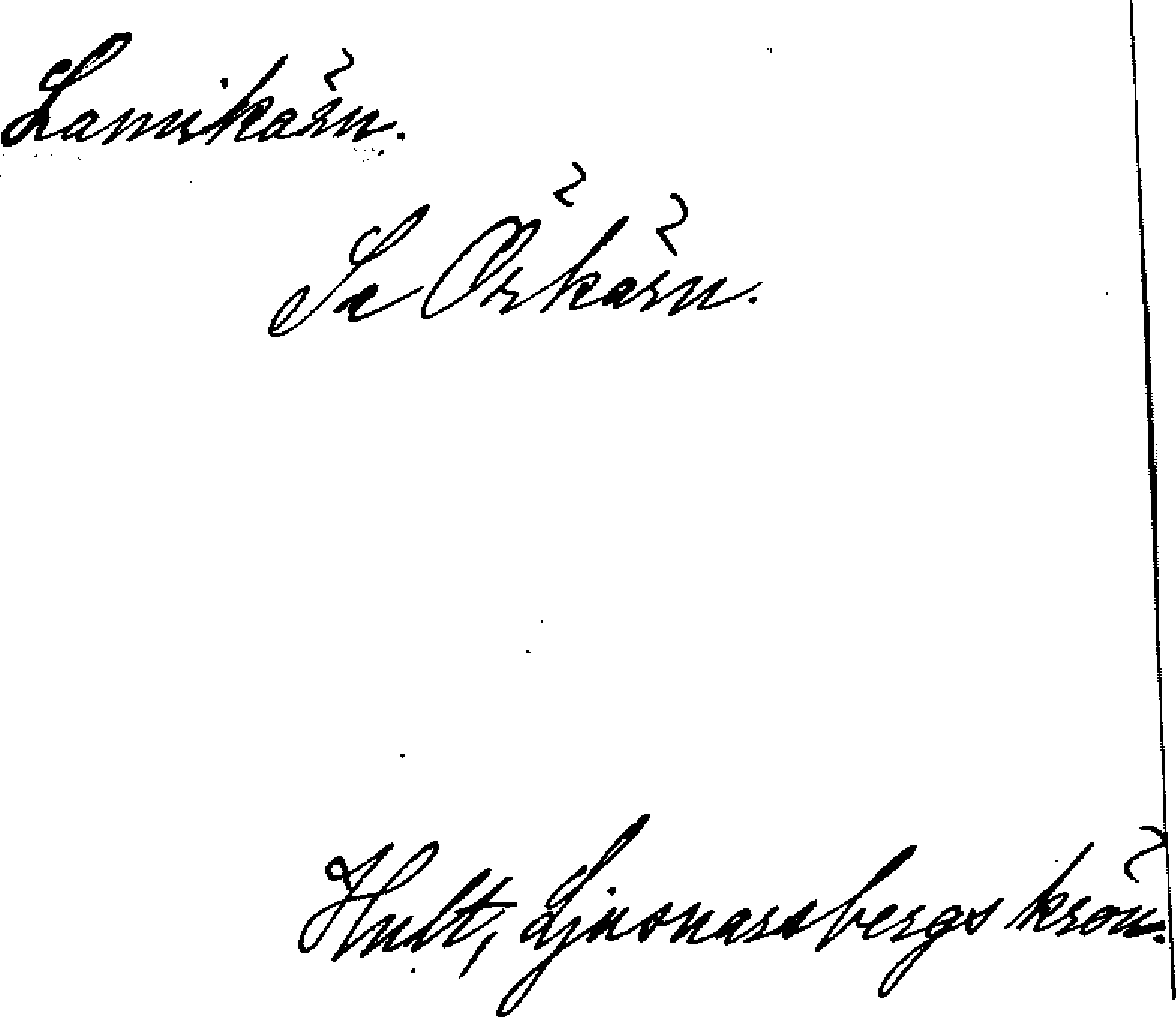 Lannikärn.
Se Örkärn.
Hult, Ljusnarsbergs krön.